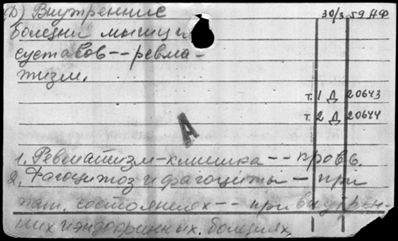 D) Внутренние 30/3 59 НФ
болезни мышц и
суставов -- ревма-
тизм.
т. 1 Д 20643
т. 2 Д 20644
А
1. Ревматизм - клиника -- кровь.
2. Фагоцитоз и фагоциты -- при
пат. состояниях -- при внутрен-
них и эндокринных болезнях.